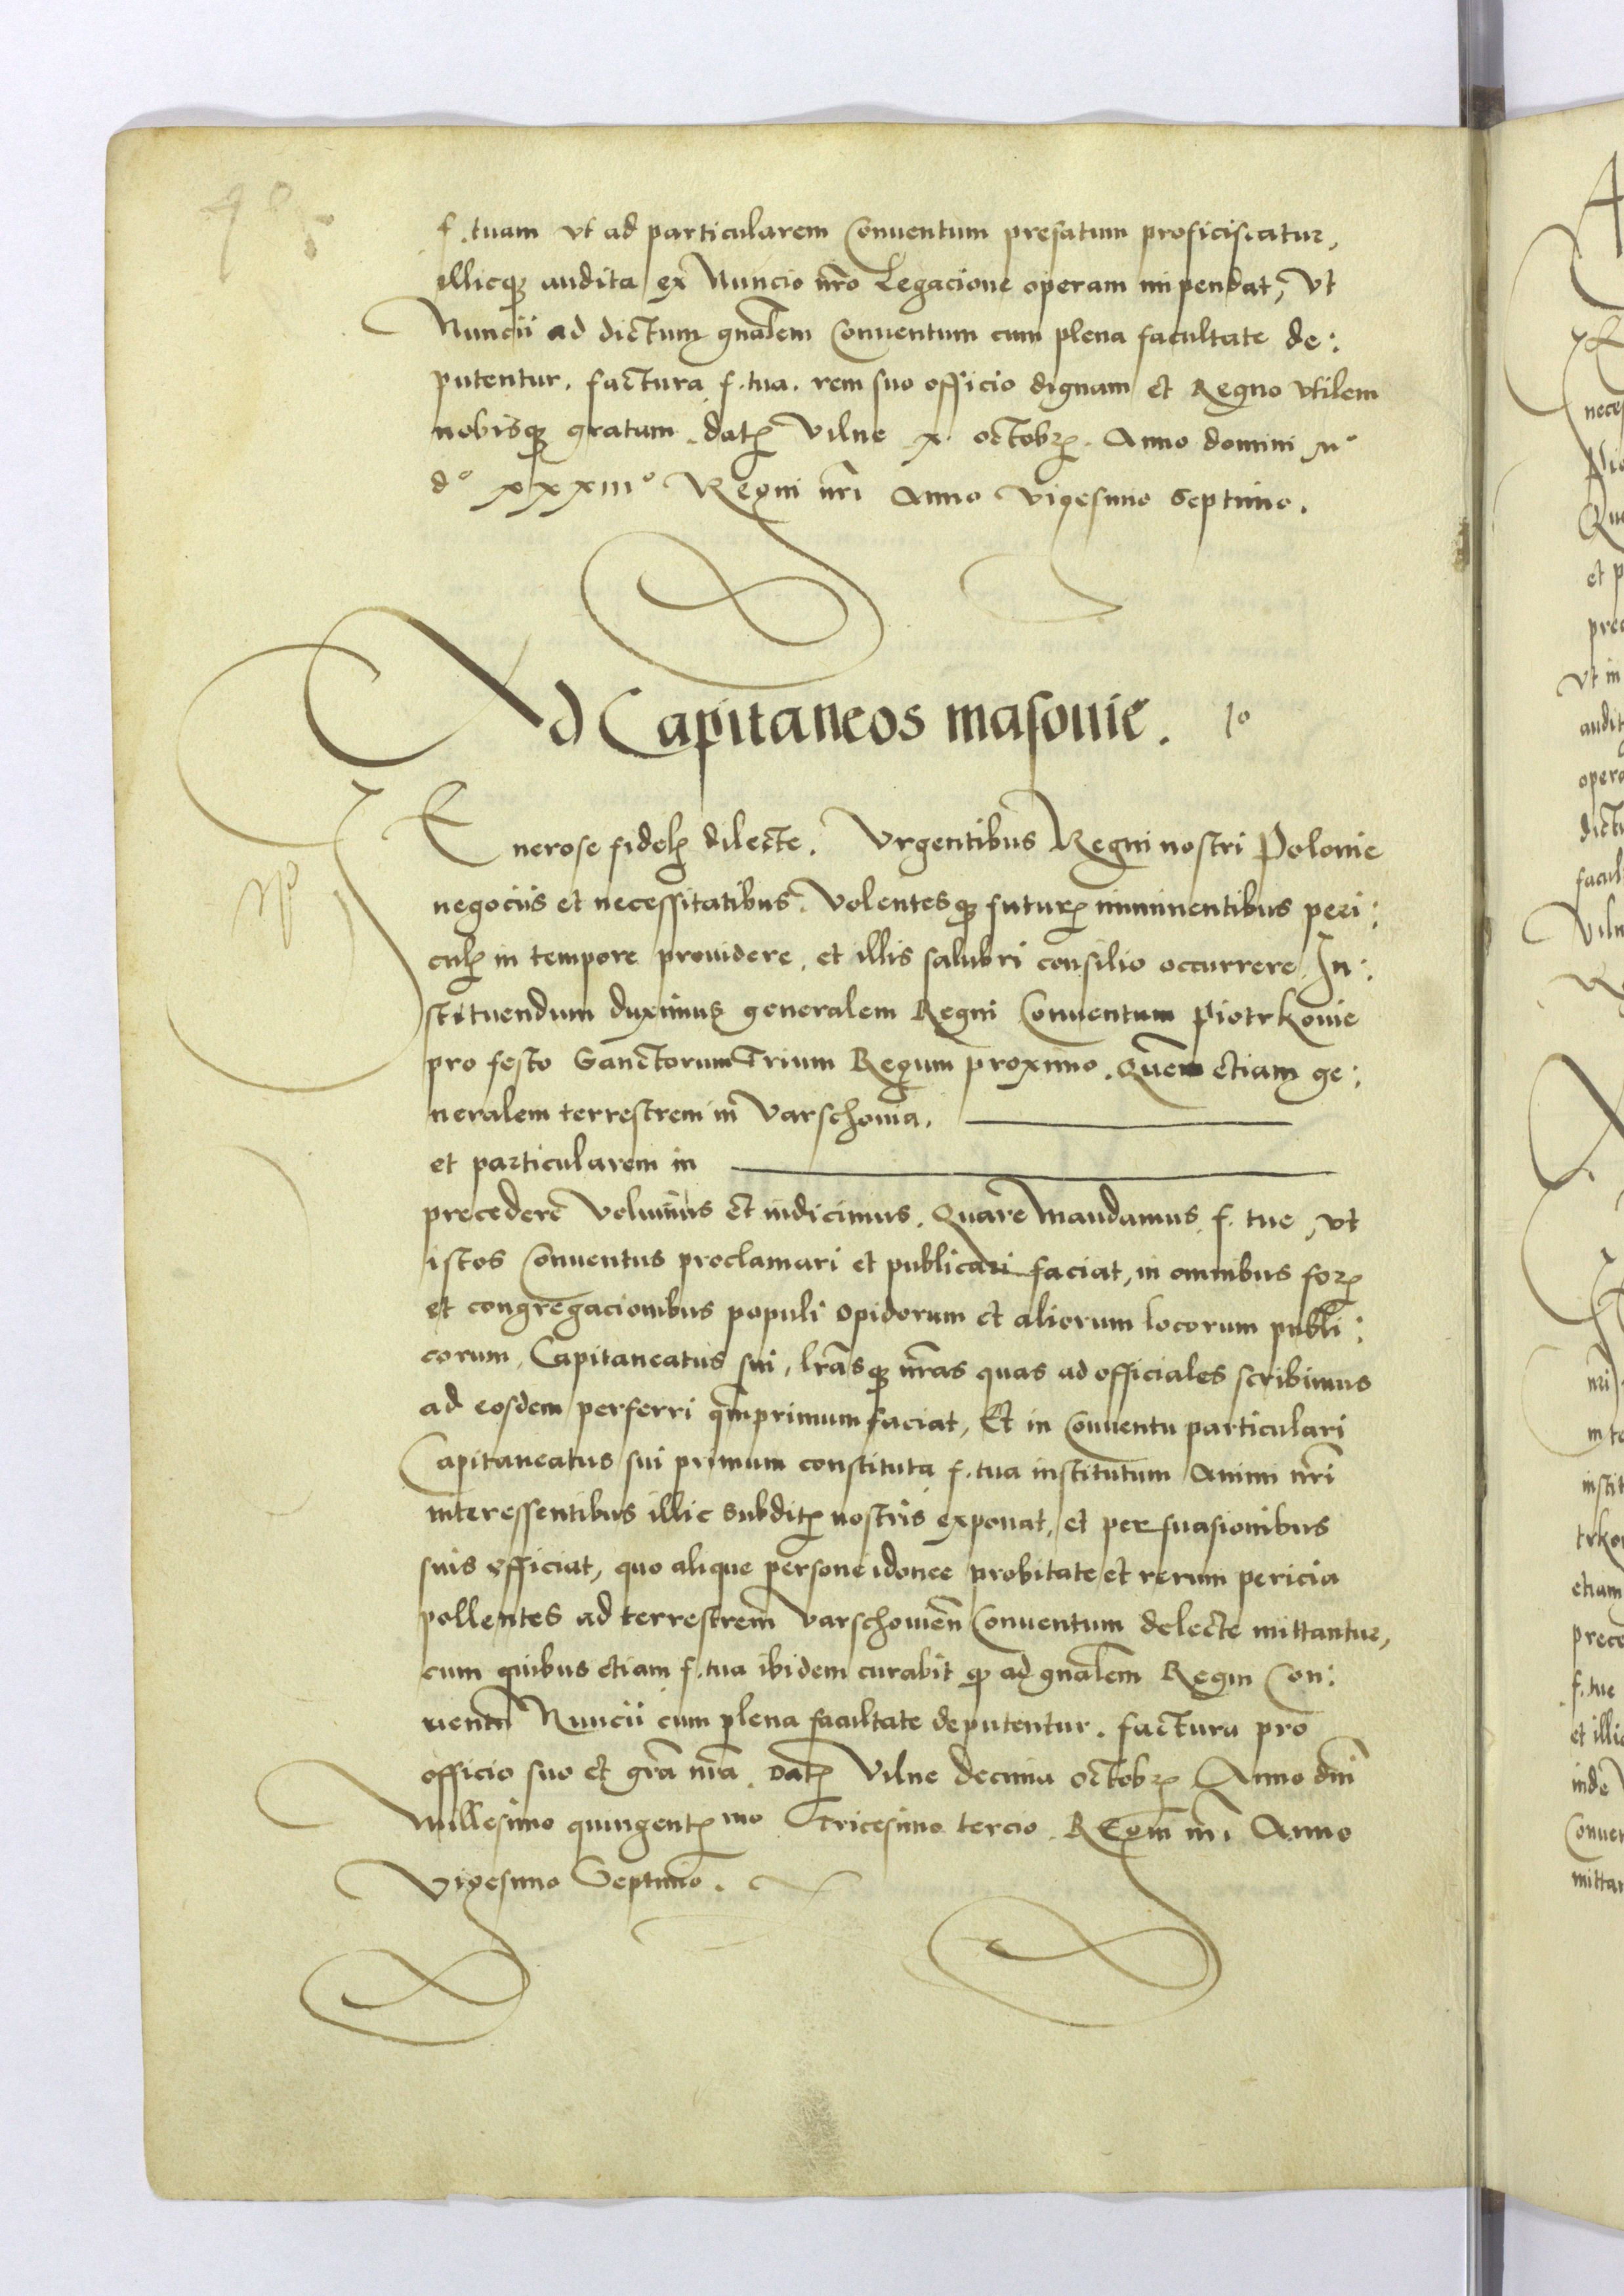 f. tuam vt ad particularem Conuentum prefatum proficiscatur,
illicqȝ audita ex Nuncio nr̄o Legacione operam impendat, vt
Nuncii ad dictum gn̄alem Conuentum cum plena facultate de:
putentur. factura f. tua. rem suo officio dignam et Regno vtilem
nobisqȝ gratum. datꝭ Vilne x. octobrꝭ. Anno domini mº
dº xxxiiiº Regni nr̄i Anno vigesimo Septimo.
Ad Capitaneos masouie. 1º
Generose fidelꝭ dilecte. Vrgentibus Regni nostri Polonie
negociis et necessitatibus. Volentesqȝ futurꝭ imminentibus peri:
culꝭ in tempore prouidere, et illis salubri consilio occurrere. In:
stituendum duximus generalem Regni Conuentum Piotrkouie
pro festo Sanctorum Trium Regum proximo. Quem etiam ge:
neralem terrestrem in Varschouia.
et particularem in
precedere Volumus et indicimus. Quare mandamus f. tue, vt
istos Conuentus proclamari et publicari faciat, in omnibus forꝭ
et congregacionibus populi opidorum et aliorum locorum publi:
corum, Capitaneatus sui, lr̄asqȝ nr̄as quas ad officiales scribimus
ad eosdem perferri qm̄primum faciat, Et in Conuentu particulari
Capitaneatus sui primum constituta f. tua institutum Animi nr̄i
interessentibus illic subditꝭ nostris exponat, et persuasionibus
suis efficiat, quo alique persone idonee probitate et rerum pericia
pollentes ad terrestrem Varschouien̄ Conuentum delecte mittantur,
cum quibus etiam f. tua ibidem curabit qȝ ad gn̄alem Regni Con:
uentū Nuncii cum plena facultate deputentur. factura pro
officio suo et gr̄a nr̄a. Datꝭ Vilne decima octobrꝭ Anno dn̄i
Millesimo quingentꝭmo tricesimo tercio. Regni nr̄i Anno
Vigesimo Septimo.